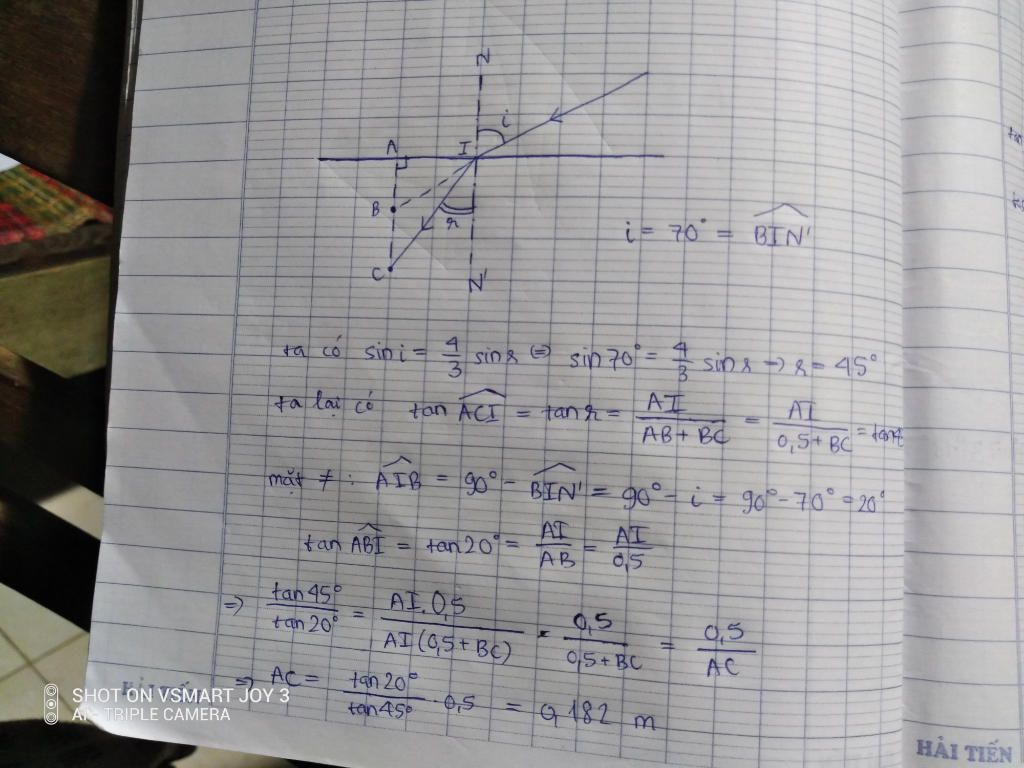 N
i
A
I
B
r
C
N'
i = 70° = BIN'
ta có sin i = 4/3 sin r ⇔ sin 70° = 4/3 sin r → r = 45°
ta lại có tan ACI = tan r = AI/(AB + BC) = AI/(0,5 + BC)
mặt ≠ : AIB = 90° - BIN' = 90° - i = 90° - 70° = 20°
tan ABI = tan 20° = AI/AB = AI/0,5
⇒ tan 45°/tan 20° = AI. 0,5/AI(0,5 + BC) = 0,5/(0,5 + BC) = 0,5/AC
⇒ AC = tan 20°/tan 45° . 0,5 = 0,182 m
SHOT ON VSMART JOY 3
AI - TRIPLE CAMERA
HẢI TIẾN